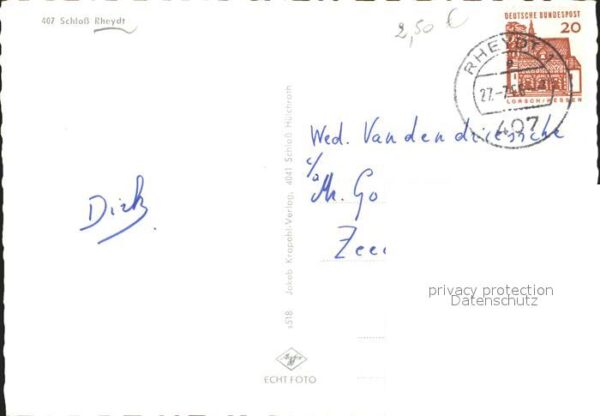 407 Schloß Rheydt
2,50 €
DEUTSCHE BUNDESPOST
20
LORSCH/HESSEN
RHEYDT 1
e
27.-7.66
407
Wed. Vandendriessche
c/o
Mr. Go
Zee
Dirk
s518 Jakob Krapohl-Verlag, 4041 Schloß Hülchrath
Agfa
ECHT FOTO
privacy protection
Datenschutz